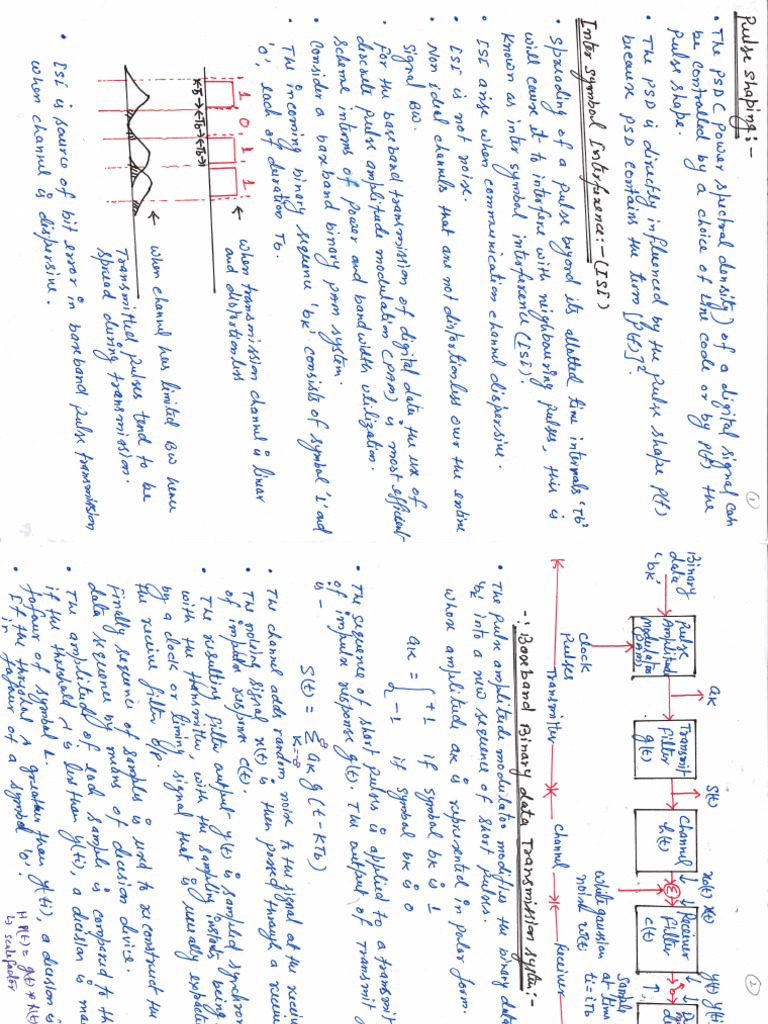 ①
Pulse shaping:-
• The PSD (Power spectral density) of a digital signal can
be controlled by a choice of line code or by p(t) the
pulse shape.
• The PSD is directly influenced by the pulse shape p(t)
because PSD contains the term [p(f)]²
Inter symbol Interference:- (ISI)
• Spreading of a pulse beyond its allotted time intervals 'Tb'
will cause it to interfere with neighbouring pulses, this is
known as inter symbol interference (ISI).
• ISI arise when communication channel dispersive.
• ISI is not noise.
• Non ideal channels that are not distortionless over the entire
signal BW.
• For the baseband transmission of digital data, the use of
discrete pulse amplitude modulation (PAM) is most efficient
scheme interms of power and bandwidth utilization.
• Consider a baseband binary PAM system.
• The incoming binary sequence 'bk' consists of symbol '1' and
'0', each of duration Tb.
1 0 1 1
Tb Tb Tb
← when transmission channel is linear
and distortionless
← when channel has limited BW hence
Transmitted pulses tend to be
spread during transmission.
• ISI is source of bit error in baseband pulse transmission
when channel is dispersive.
②
Binary
data
'bk'
Pulse
Amplitude
Modulator
(PAM)
clock
Pulses
ak
Transmit
Filter
g(t)
s(t)
Channel
h(t)
xo(t) x(t)
Σ
white gaussian
noise w(t)
Receiver
Filter
c(t)
y(t)
Sample
at time
ti = iTb
Transmitter
Channel
Receiver
-: Baseband Binary data Transmission system:-
• The pulse amplitude modulator modifies the binary data
'bk' into a new sequence of short pulses.
whose amplitude ak is represented in polar form.
ak = { +1 if symbol bk is 1
-1 if symbol bk is 0
• The sequence of short pulses is applied to a transmit
of impulse response g(t). The output of transmit
is -
S(t) = Σ ak g(t-kTb)
k=-∞
• The channel adds random noise to the signal at the
• The noising signal x(t) is then passed through a
of impulse response c(t).
• The resulting filter output y(t) is sampled
with the transmitter, with the sampling instants being
by a clock or timing signal that is usually
the receive filter o/p.
Finally sequence of samples is used to reconstruct the
data sequence by means of decision device.
• The amplitude of each sample is compared to
if the threshold λ is less than y(t), a decision is
favour of symbol 1.
• If the threshold is greater than y(t), a decision is
in favour of a symbol '0'.